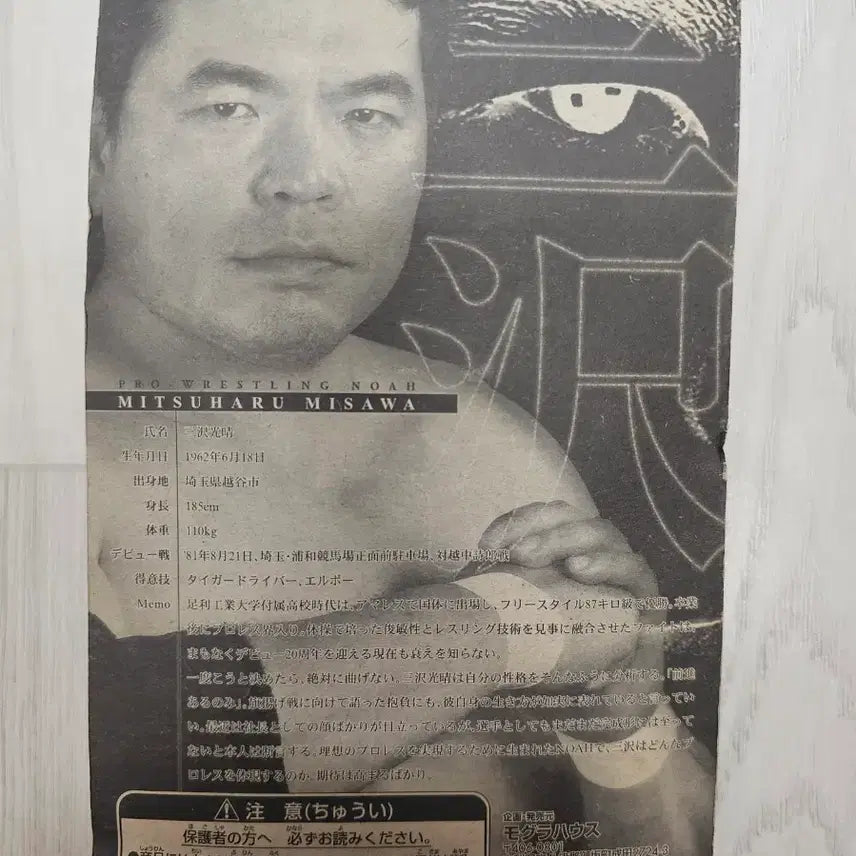 三沢
PRO-WRESTLING NOAH
MITSUHARU MISAWA
氏名 三沢光晴
生年月日 1962年6月18日
出身地 埼玉県越谷市
身長 185cm
体重 110kg
デビュー戦 '81年8月21日、埼玉・浦和競馬場正面前駐車場、対越中詩郎戦
得意技 タイガードライバー、エルボー
Memo 足利工業大学付属高校時代は、アマレスで国体に出場し、フリースタイル87キロ級で優勝。卒業
後にプロレス界入り。体操で培った俊敏性とレスリング技術を見事に融合させたファイトは、
まもなくデビュー20周年を迎える現在も衰えを知らない。
一度こうと決めたら、絶対に曲げない。三沢光晴は自分の性格をそんなふうに分析する。「前進
あるのみ」。旗揚げ戦に向けて語った抱負にも、彼自身の生き方が如実に表れていると言ってい
い。最近は社長としての顔ばかりが目立っているが、選手としてもまだまだ完成形には至って
ないと本人は断言する。理想のプロレスを実現するために生まれたNOAHで、三沢はどんなプ
ロレスを体現するのか。期待は高まるばかり。
注意(ちゅうい)
保護者の方へ 必ずお読みください。
企画・発売元
モグラハウス